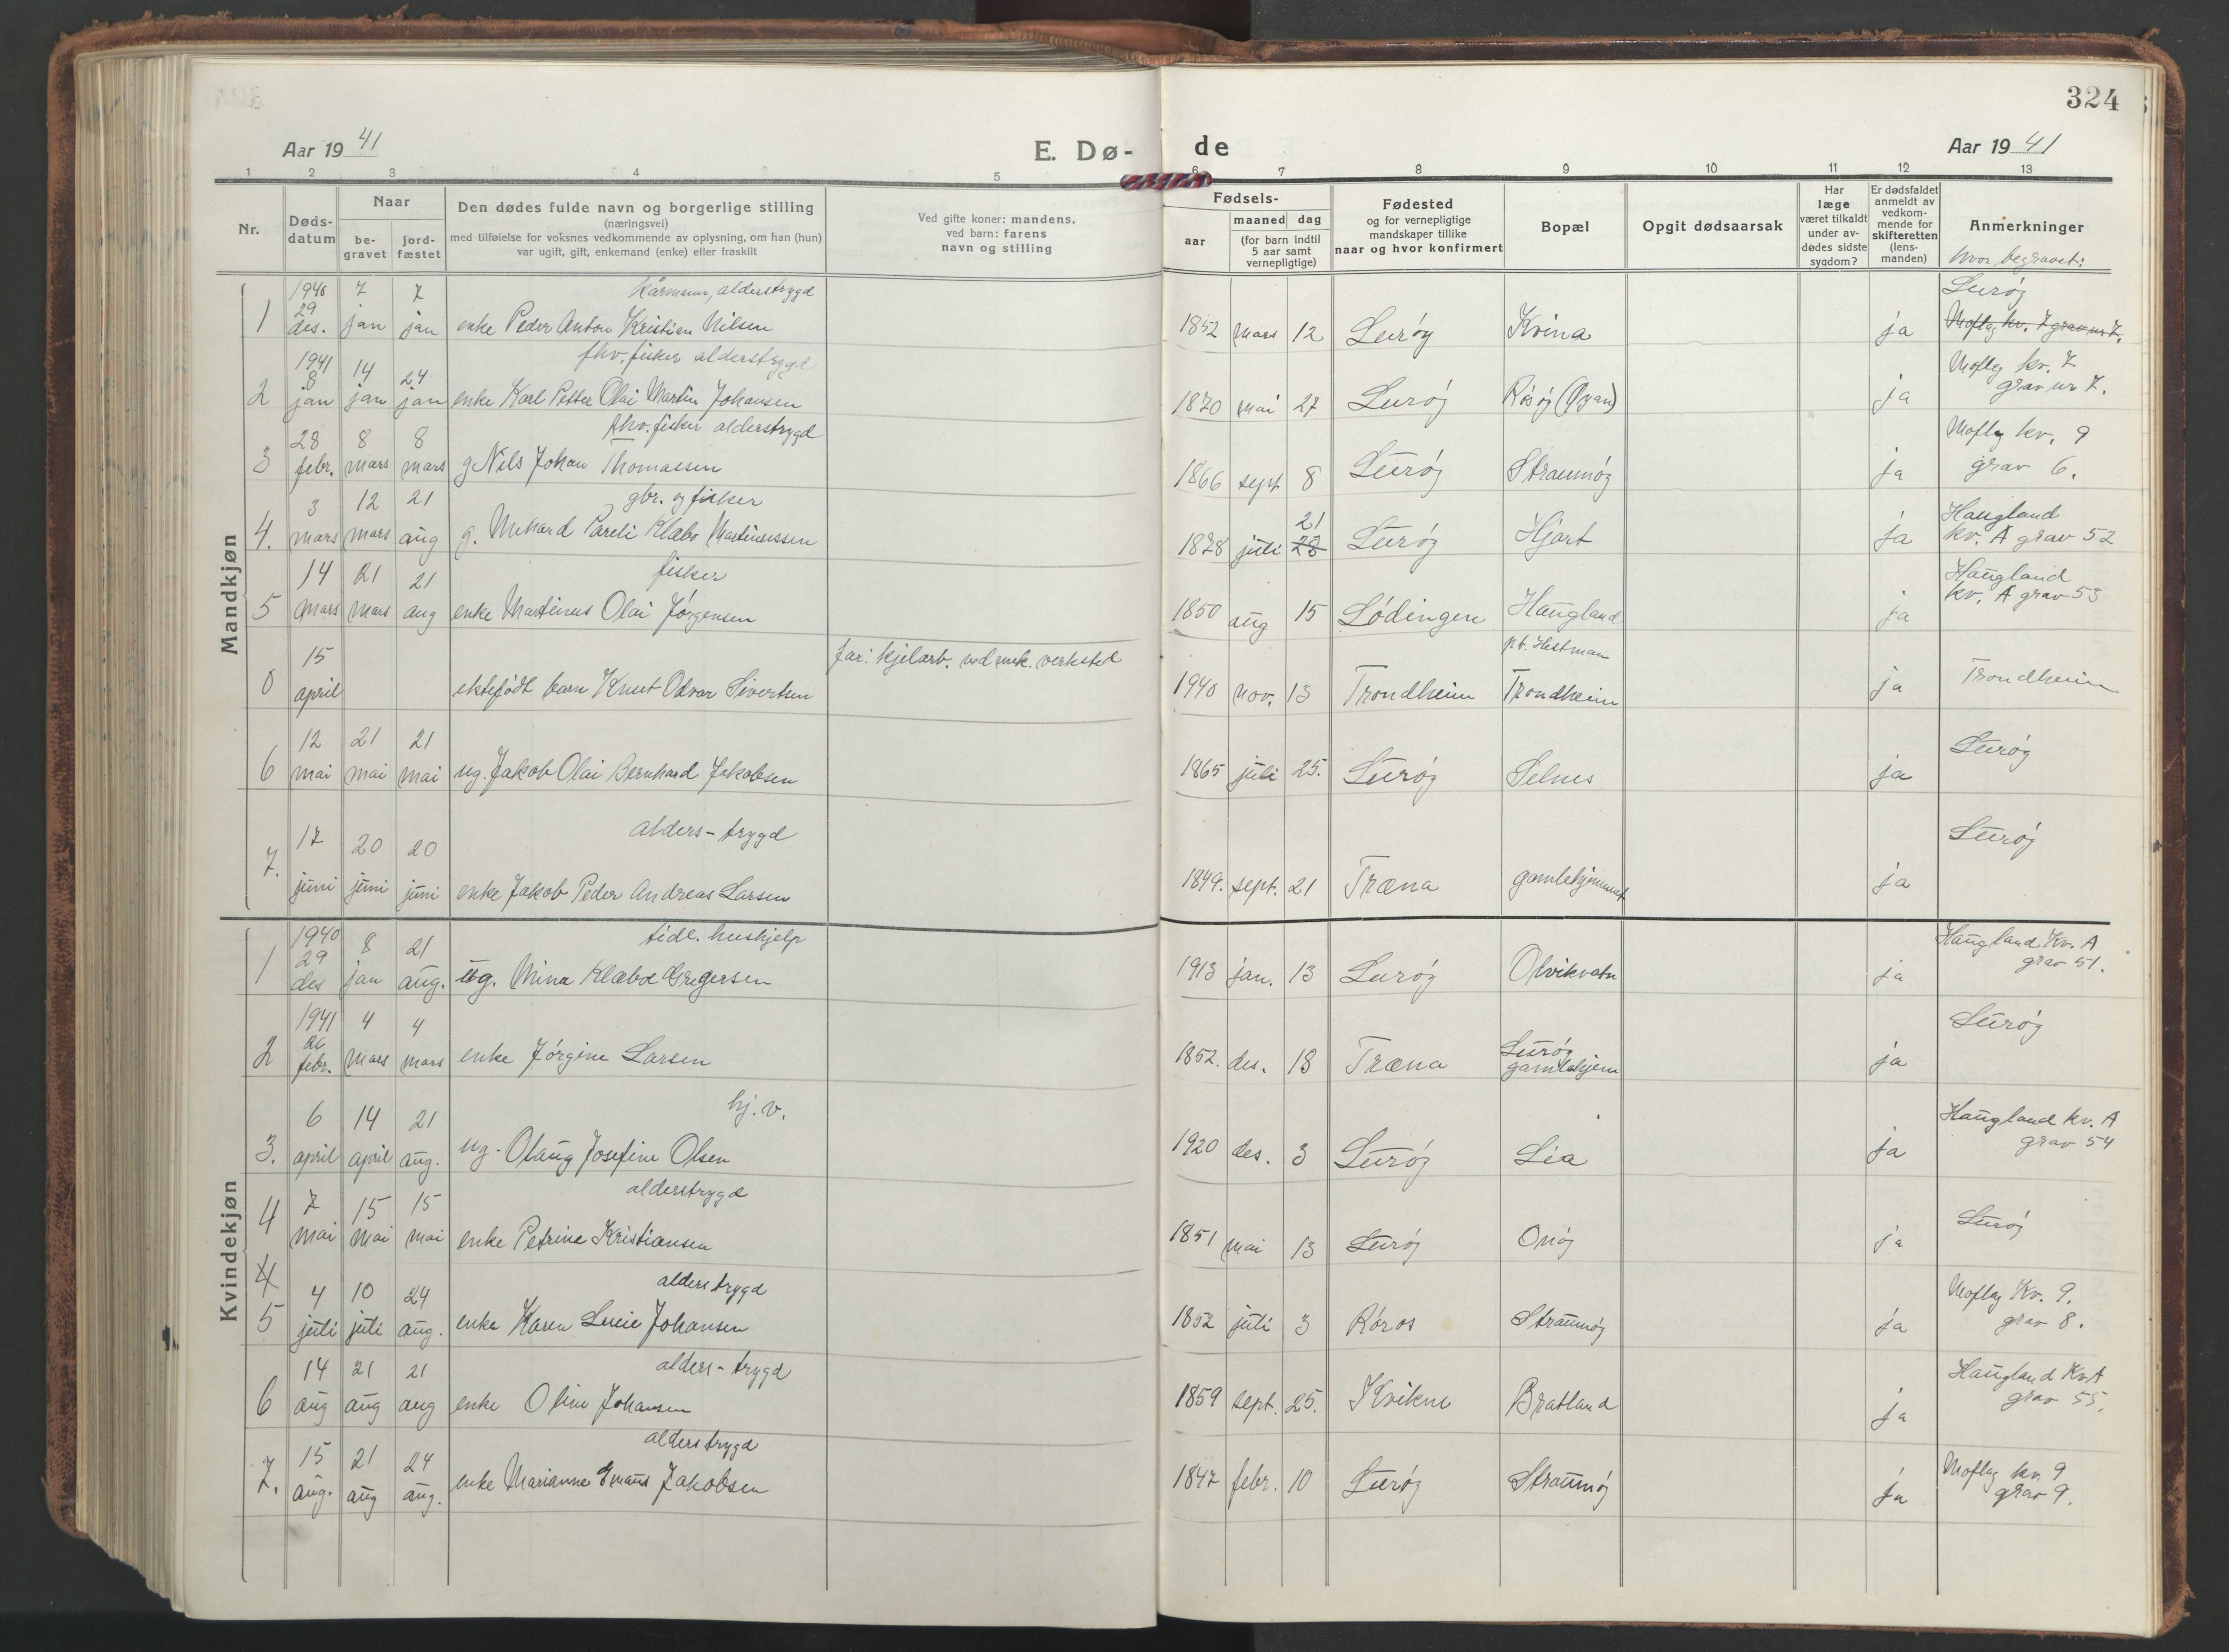 324
Aar 1941
E. Dø-
de
Aar 1941
1 2 3 4 5 6 7 8 9 10 11 12 13
Nr.
Døds-
datum
Naar
be-
gravet
jord-
fæstet
Den dødes fulde navn og borgerlige stilling
(næringsvei)
med tilføielse for voksnes vedkommende av oplysning, om han (hun)
var ugift, gift, enkemand (enke) eller fraskilt
Ved gifte koner: mandens,
ved barn: farens
navn og stilling
Fødsels-
aar
maaned dag
(for barn indtil
5 aar samt
vernepligtige)
Fødested
og for vernepligtige
mandskaper tillike
naar og hvor konfirmert
Bopæl
Opgit dødsaarsak
Har
læge
været tilkaldt
under av-
dødes sidste
sygdom?
Er dødsfaldet
anmeldt av
vedkom-
mende for
skifteretten
(lens-
manden)
Anmerkninger
hvor begravet:
Mandkjøn
1940 7 7 kårmann, alderstrygd Lurøy
29
1 des. jan jan enke Peder Anton Kristian Nilsen 1852 mars 12 Lurøy Kvina ja Moflag kv. 7 grav nr 7.
1941 14 24 fhv. fisker alderstrygd Moflag kv. 7
8
2 jan jan jan enke Karl Petter Olai Martin Johansen 1870 mai 27 Lurøy ja grav nr 7.
28 8 8 fhv. fisker alderstrygd Moflag kv. 9
3 febr. mars mars g Nils Johan Thomassen 1866 sept 8 Lurøy Straumøy ja grav 6.
3 12 21 gbr. og fisker 21 Haugland
4. mars mars aug g. Pareli Klæbo Martinussen 1878 juli 28 Lurøy Hjart ja kv. A grav 52
14 21 21 fisker Haugland
5 mars mars aug enke Martinus Olai Jørgensen 1850 aug 15 Lødingen Haugland ja kv. A grav 53
15 far: kjelarb. ved mek. verksted pt. Hestman
0 april ektefødt barn Knut Odvar Sivertsen 1940 nov. 13 Trondheim Trondheim ja Trondheim
12 21 21 Lurøy
6 mai mai mai ug. Jakob Olai Bernhard Jakobsen 1865 juli 25. Lurøy Selnes ja
17 20 20 alders-trygd Lurøy
7. juni juni juni enke Jakob Peder Andreas Larsen 1849. sept. 21 Træna gamlehjemmet ja
Kvindekjøn
1940 8 21 tidl. hushjelp Haugland Kv. A
29
1 des jan aug. ug. Mina Klæboe Gregersen 1913 jan. 13 Lurøy Olvikvatn ja grav 51.
1941 4 4 Lurøy
26 Lurøy
2 febr. mars mars enke Jørgine Larsen 1852. des. 13 Træna gamlehjem ja
6 14 21 hj. v. Haugland kv. A
3. april april aug. ug. Olaug Josefine Olsen 1920 des. 3 Lurøy Lia ja grav 54
7 15 15 alderstrygd Lurøy
4 mai mai mai enke Petrine Kristiansen 1851 mai 13 Lurøy Onøy ja
4
4 10 24 alderstrygd Moflag Kv. 9.
5 juli juli aug. enke Karen Lucie Johansen 1852 juli 3 Røros Straumøy ja grav 8.
14 21 21 alders-trygd Haugland Kv. A
6 aug aug aug enke Oline Johansen 1859 sept. 25. Kvikne Bratland ja grav 55.
15 21 24 alderstrygd Moflag kv. 9
7. aug. aug aug. enke Marianne Emaus Jakobsen 1847 febr. 10 Lurøy Straumøy ja grav 9.